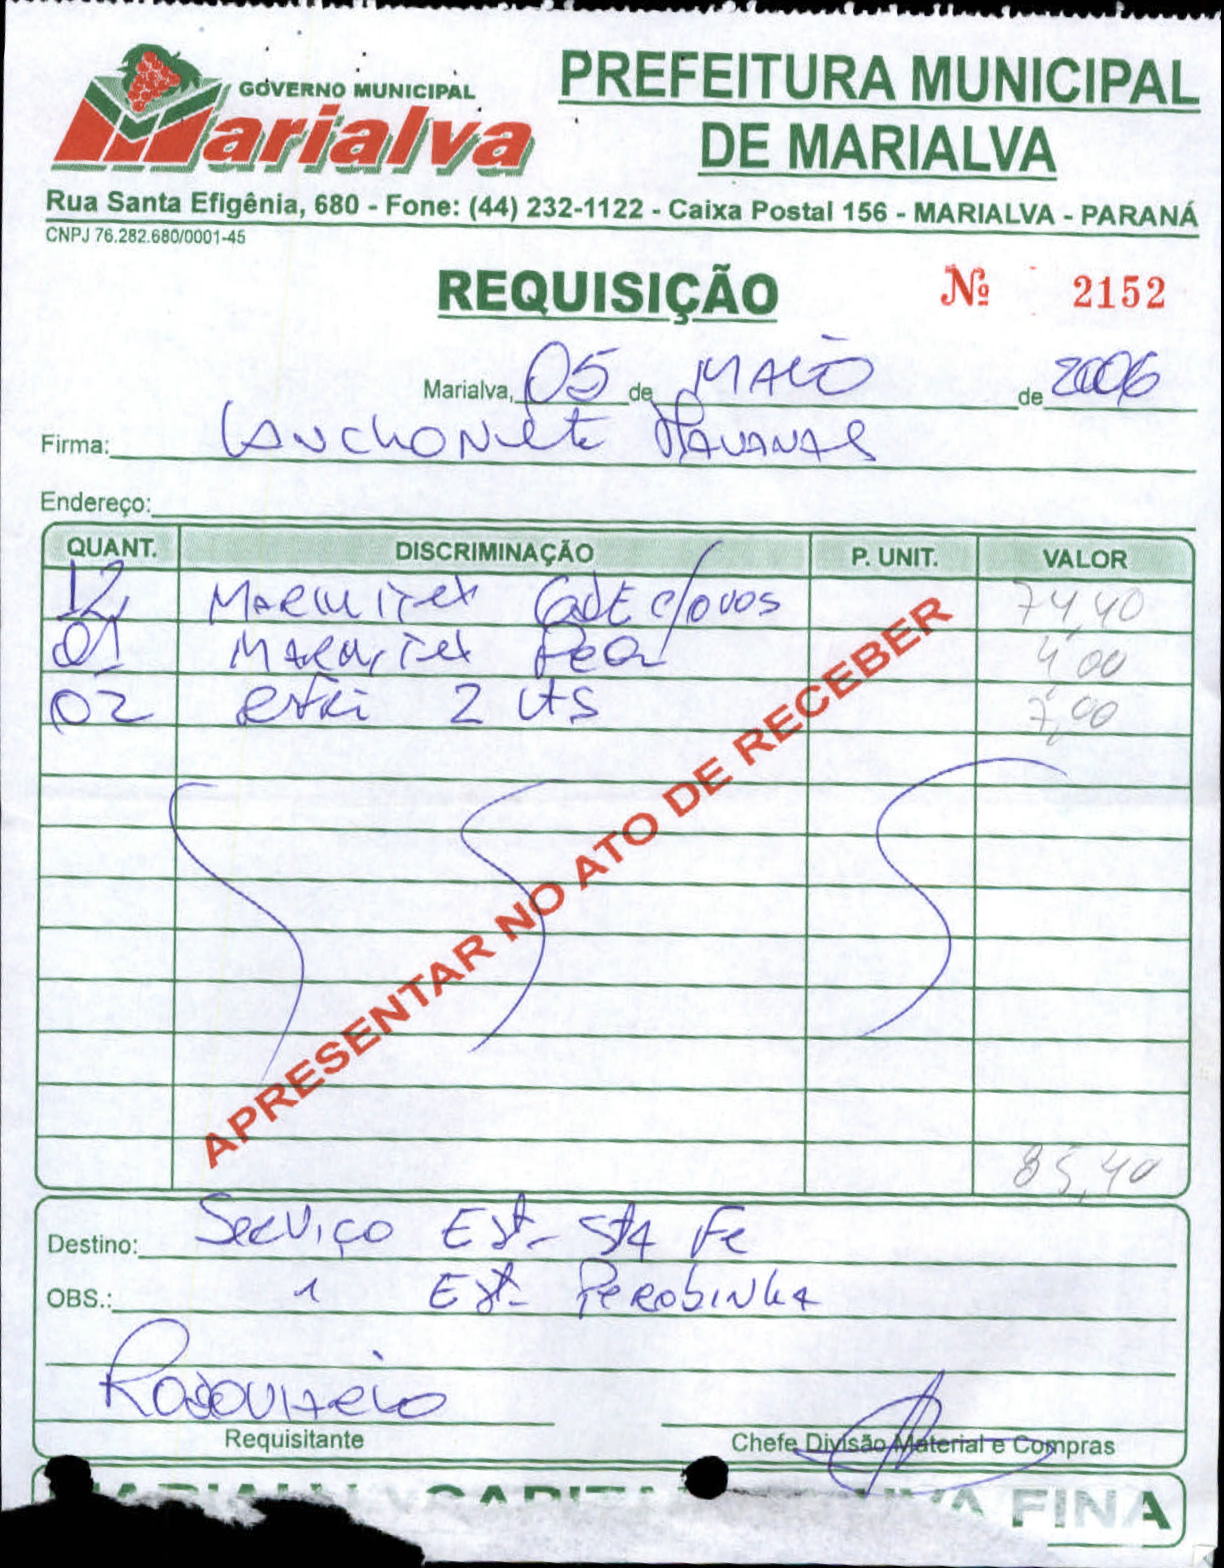 GOVERNO MUNICIPAL
Marialva
PREFEITURA MUNICIPAL
DE MARIALVA
Rua Santa Efigênia, 680 - Fone: (44) 232-1122 - Caixa Postal 156 - MARIALVA - PARANÁ
CNPJ 76.282.680/0001-45
REQUISIÇÃO
Nº 2152
Marialva, 05 de MAIO de 2006
Firma: LANCHONETE HAVANAS
Endereço:
QUANT. DISCRIMINAÇÃO P. UNIT. VALOR
12 MARMITEX c/OVOS 74,40
01 MARMITEX 4,00
02 2 LTS 7,00
APRESENTAR NO ATO DE RECEBER
85,40
Destino: SERVIÇO EST- STA FE
OBS.: EST- PEROBINHA
RODOVIARIO
Requisitante
Chefe Divisão Material e Compras
FINA